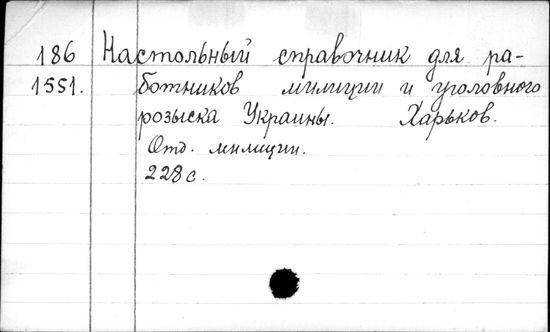 186 Настольный справочник для ра-
1551. ботников милиции и уголовного
розыска Украины. Харьков.
Отд. милиции.
228 с.